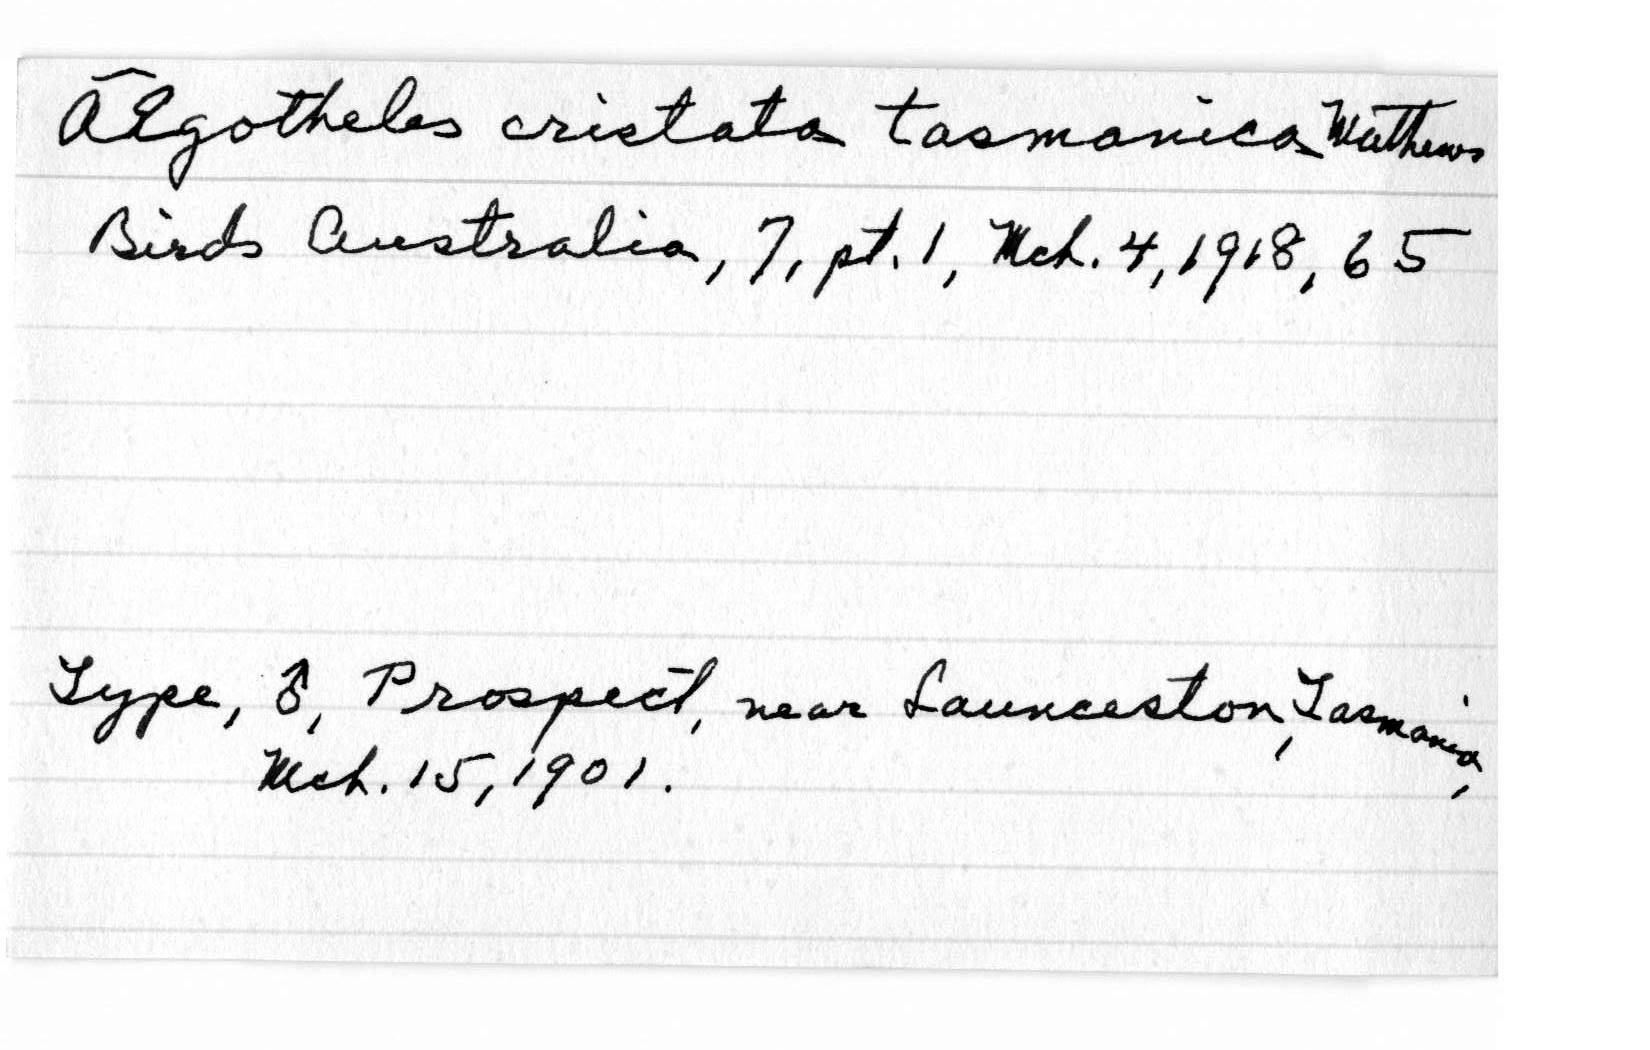 Ægotheles cristata tasmanica Mathews
Birds Australia, 7, pt. 1, Mch. 4, 1918, 65
Type, ♂, Prospect, near Launceston, Tasmania,
Mch. 15, 1901.